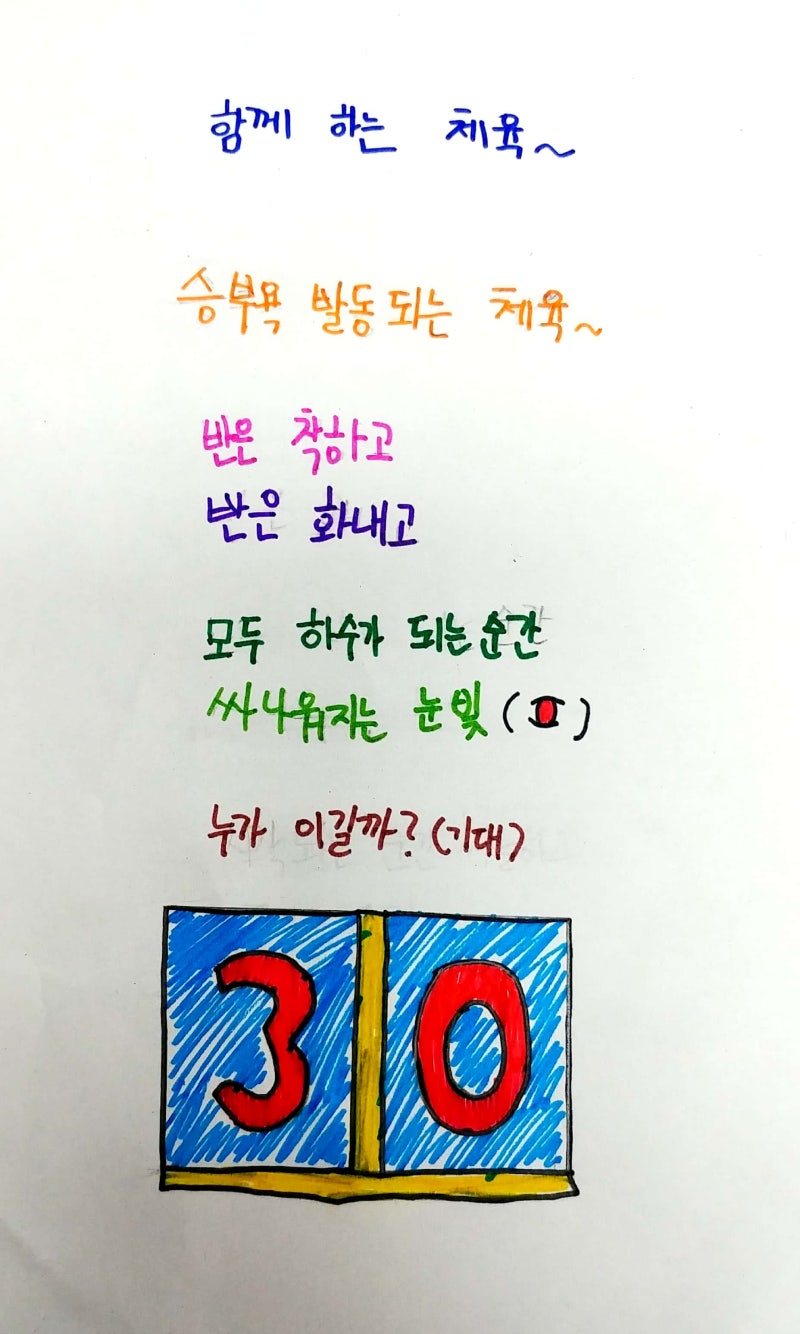 함께 하는 체육~
승부욕 발동되는 체육~
반은 착하고
반은 화내고
모두 하수가 되는순간
싸나워지는 눈빛 ( )
누가 이길까? (기대)
3 0